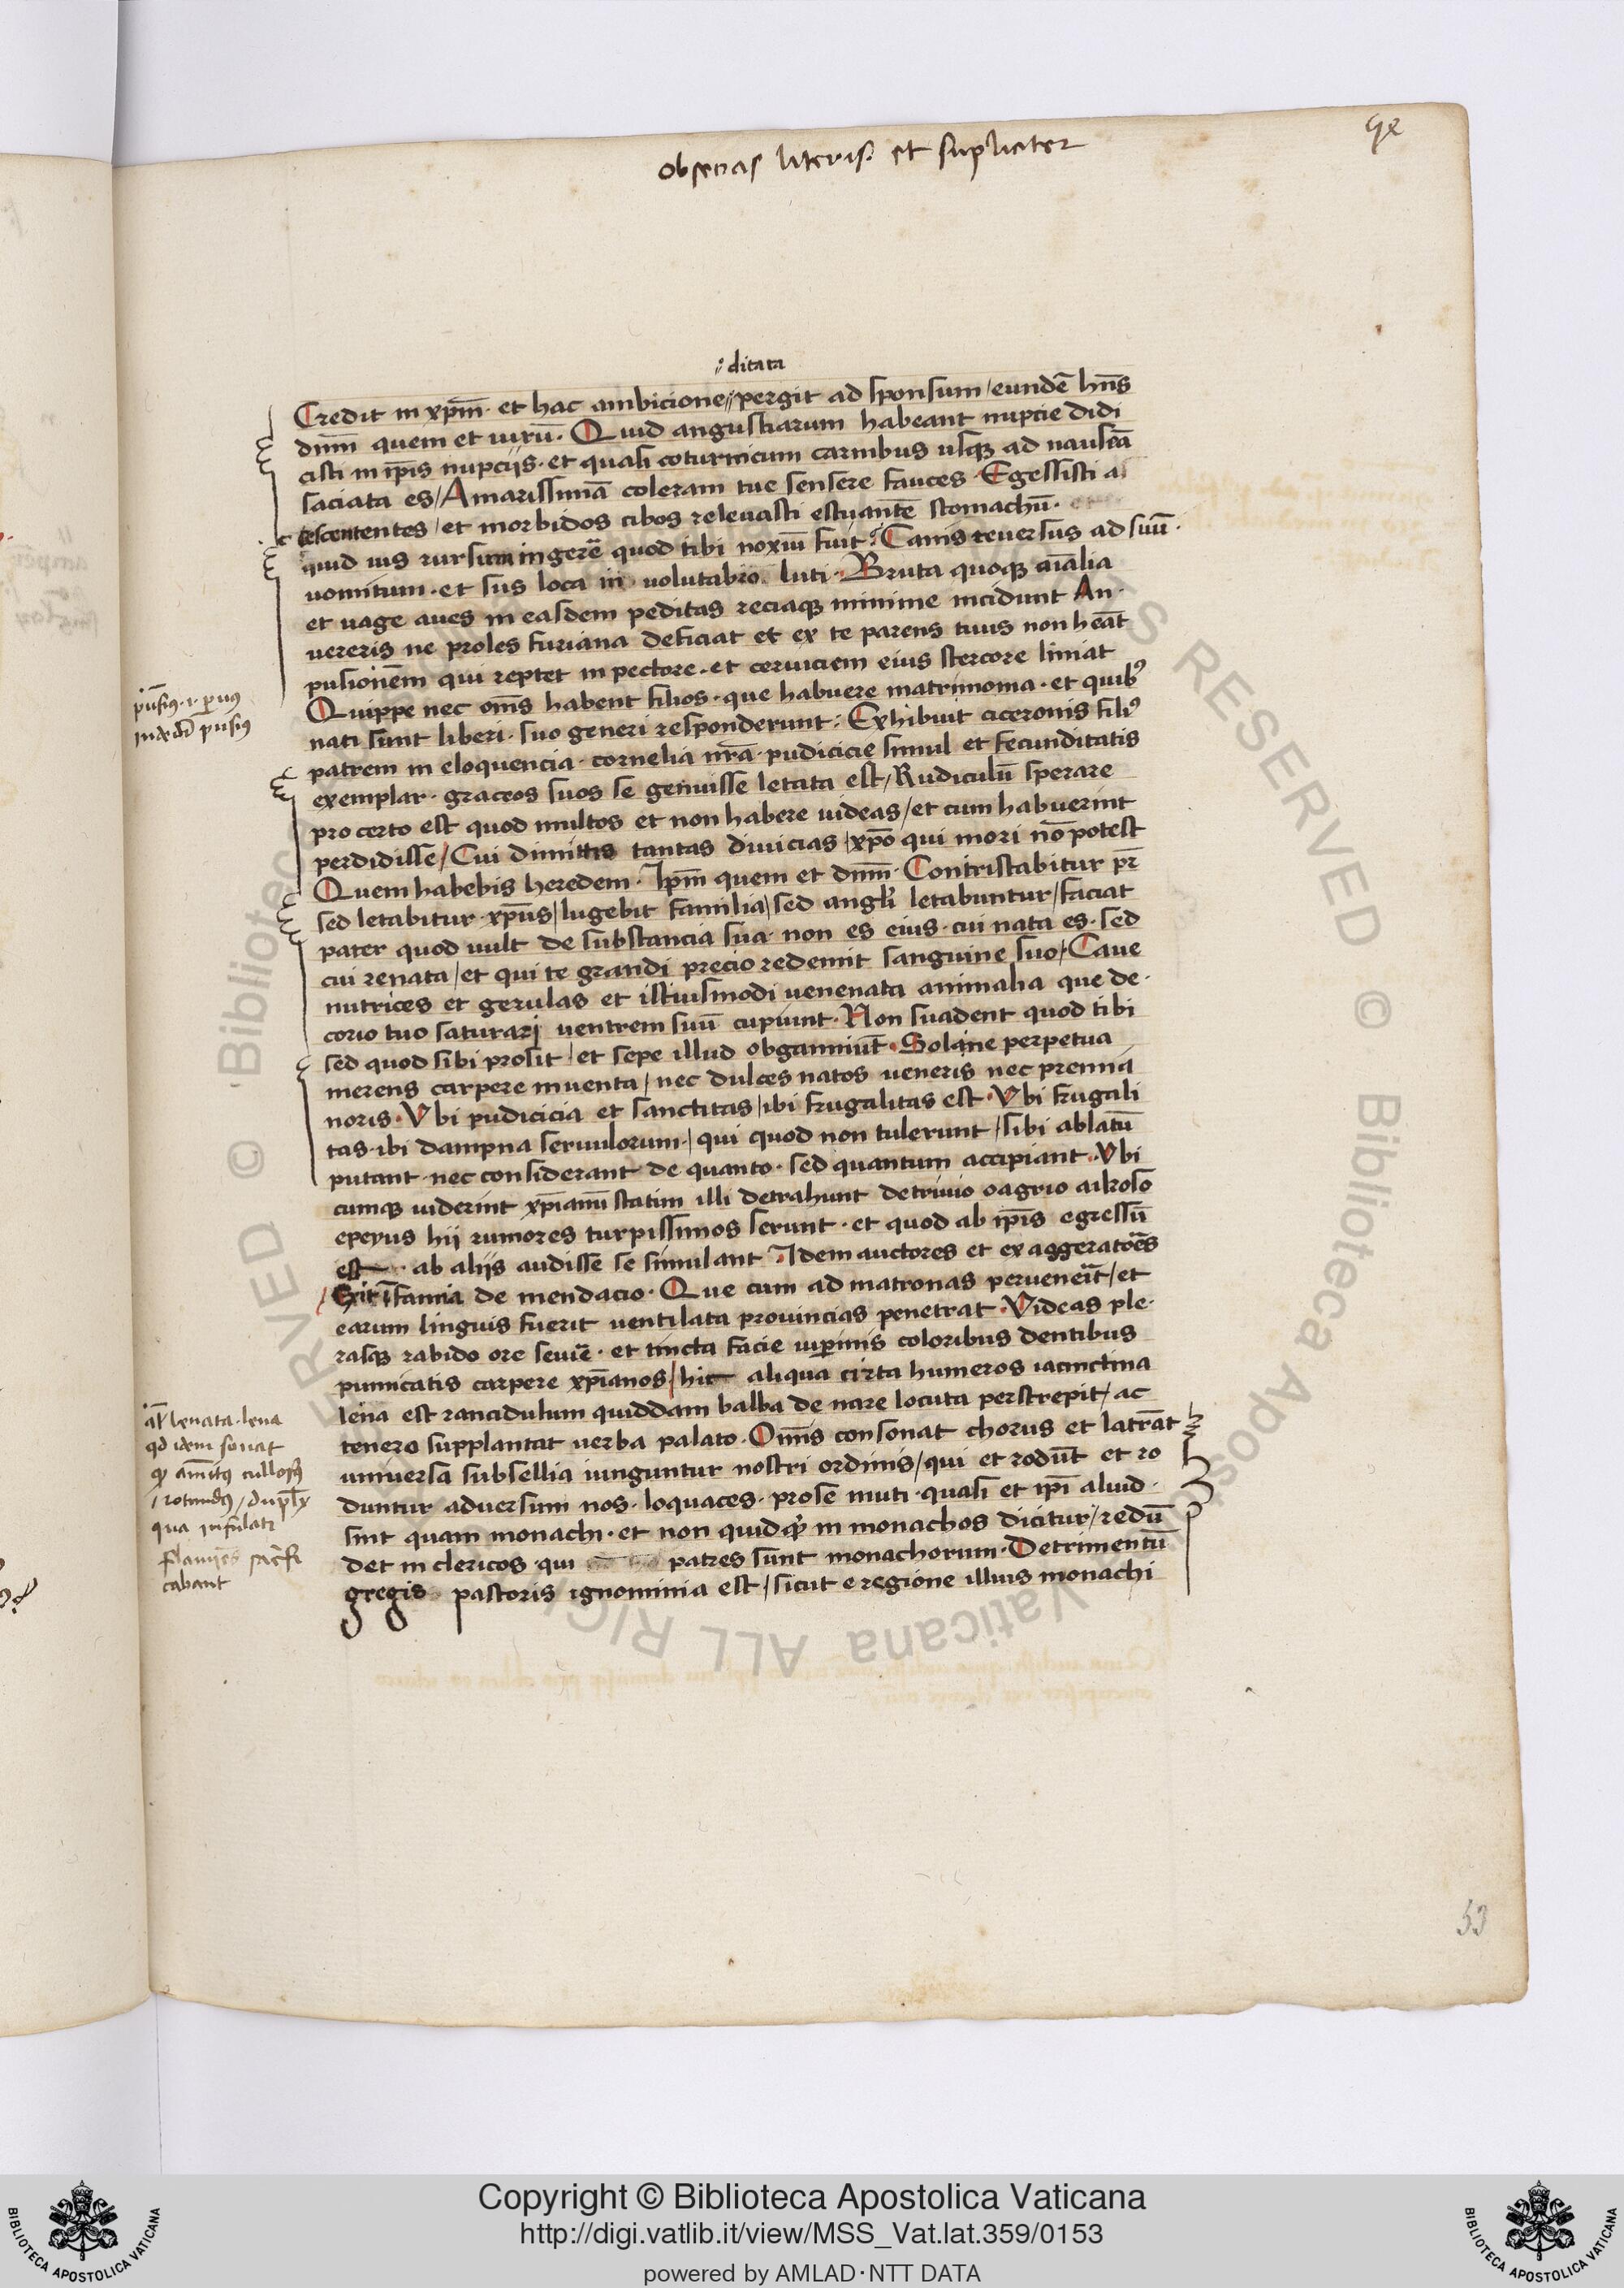 obsecras literis et supliciter
53
·:ditata
Credit in xpm̄· et hac ambicione·: pergit ad sponsum / eundē hn̄s
dnm̄ quem et uirū· Quid angustiarum habeant nupcie didi
cisti in ip̄is nupcijs· et quasi coturnicum carnibus usqꝫ ad nauseā
saciata es / Amarissimā coleram tue sensere fauces· Egessisti a
cescentes / et morbidos cibos releuasti estuantē stomachū·
quid uis rursum ingerē quod tibi noxiū fuit? Canis reuersus ad suū·
uomitum· et sus lota in uolutabro luti· Bruta quoqꝫ aīalia
et uage aues in easdem peditas reciaqꝫ minime incidunt An·
uereris ne proles furiana deficiat et ex te parens tuus non hēat
pusionem qui reptet in pectore· et ceruiciem eius stercore liniat
Quippe nec om̄s habent filios· que habuere matrimonia· et quibꝰ
nati sunt liberi· suo generi responderunt· Exhibuit ciceronis filiꝰ
patrem in eloquencia· cornelia nr̄a· pudicicie simul et fecunditatis
exemplar· graccos suos se genuisse letata est / Rudiculū sperare
pro certo est quod multos et non habere uideas / et cum habuerint
perdidisse / Cui dimittis tantas diuicias / xp̄o qui mori nō potest
Quem habebis heredem· Ipm̄ quem et dnm̄· Contristabitur pr̄
sed letabitur xp̄us / lugebit familia / sed angli letabuntur / faciat
pater quod uult de substancia sua· non es eius· cui nata es· sed
cui renata / et qui te grandi precio redemit sanguine suo / Caue
nutrices et gerulas et istiusmodi uenenata animalia que de·
corio tuo saturarj uentrem suū cupiunt· Non suadent quod tibi
sed quod sibi prosit / et sepe illud obganniūt· Solane perpetua
merens carpere inuenta / nec dulces natos ueneris nec premia
noris· Vbi pudicicia et sanctitas / ibi frugalitas est· Vbi frugali
tas· ibi dampna seruulorum / qui quod non tulerunt / sibi ablatū
putant· nec considerant de quanto· sed quantum accipiant· Vbi
cumqꝫ uiderint xp̄ianū statim illi detrahunt detriuio oagrio aikoso
epeyus hij rumores turpissimos serunt· et quod ab ip̄is egressū
est ab alijs audisse se simulant Idem auctores et exaggeratoēs
Exit īfamia de mendacio· Que cum ad matronas perueneīt / et
earum linguis fuerit uentilata prouincias penetrat· Videas ple·
rasqꝫ rabido ore seuiē· et tincta facie uiperinis coloribus dentibus
pumicatis carpere xp̄ianos / hic aliqua cirta humeros iacinctina
lena est rancidulum quiddam balba de nare locuta perstrepit / ac
tenero supplantat uerba palato· Omīs consonat chorus et latrāt
uniuersa subsellia iunguntur nostri ordinis / qui et rodūt et ro
duntur aduersum nos· loquaces· pro se muti· quasi et ip̄i aliud·
sint quam monachi· et non quidqꝫ in monachos dicitur / redū
det in clericos qui patres sunt monachorum· Detrimentū
gregis pastoris ignominia est / sicut e regione illius monachi
pusiꝰ·i·ꝑuꝰ
lena
qd idem sonat
rotundꝰ / dupl̄x
qua infulati
cabant
Copyright © Biblioteca Apostolica Vaticana
http://digi.vatlib.it/view/MSS_Vat.lat.359/0153
powered by AMLAD·NTT DATA
BIBLIOTECA APOSTOLICA VATICANA
BIBLIOTECA APOSTOLICA VATICANA